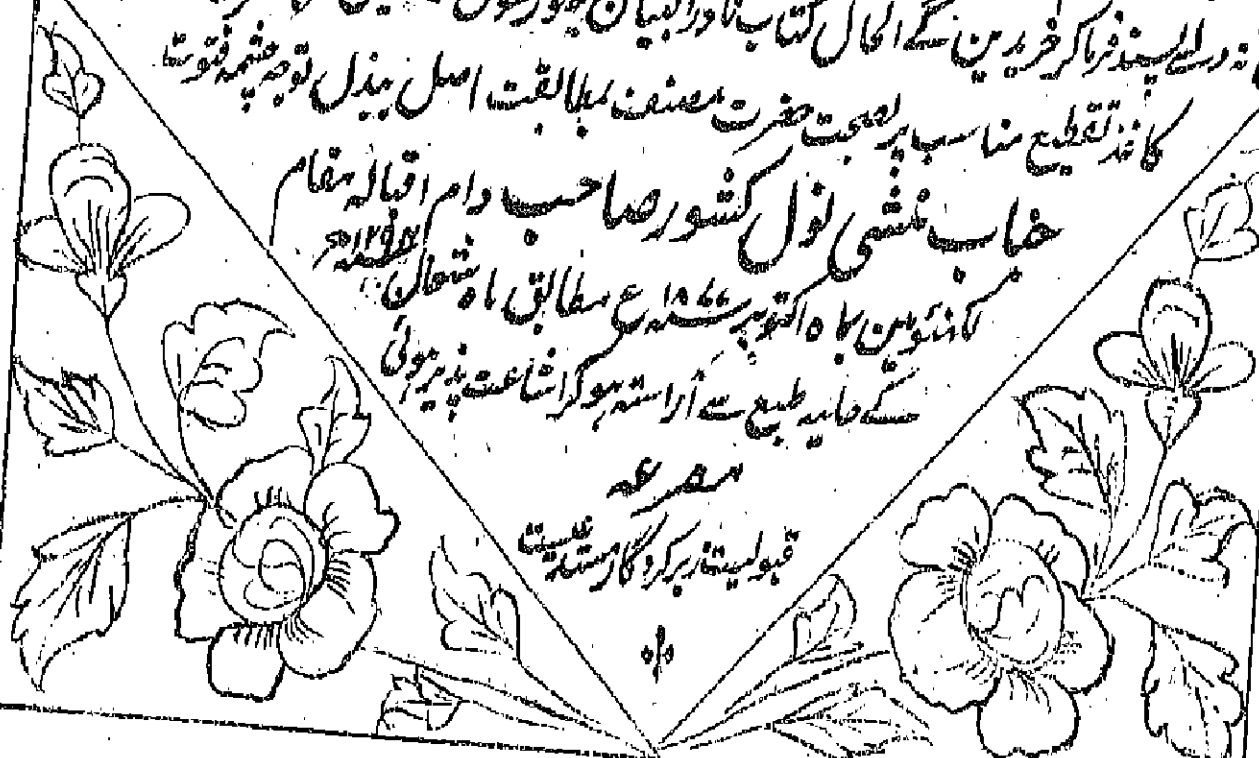 نہ دلسے پسند فرما کر خریدین گے الحال کتاب نادر البیان
کاغذ تقطیع مناسب پر بصحت حضرت مصنف بمطابقت اصل ببذل توجہ چشمہ فتوت
جناب منشی نول کشور صاحب دام اقبالہ مقام
کانپور مین بماہ اکتوبر ۱۸۷۷ع مطابق ماہ شوال ۱۲۹۴ھ
کے حلیہ طبع سے آراستہ ہو کر اشاعت پذیر ہوئی
مصرعہ
قبولیت بر کردگار ست